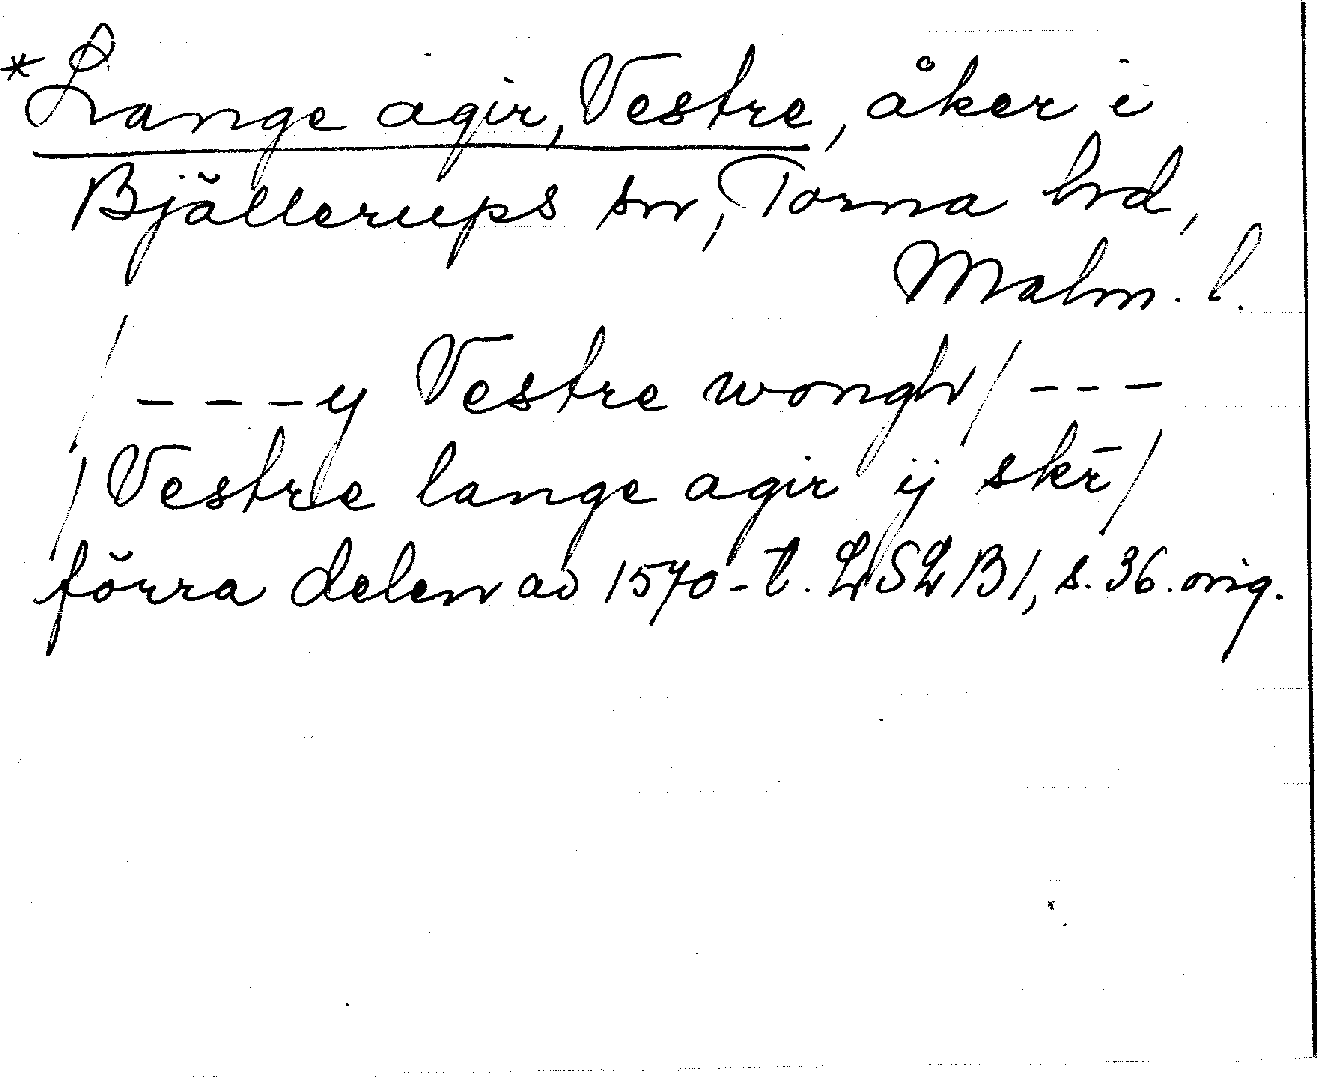 *Lange agir, Vestre, åker i
Bjällerups sn, Torna hd,
Malm. l.
/ ---y Vestre wongh/ ---
/Vestre lange agir ij skr̄/
förra delen av 1570-t. LSLB1, s. 36. orig.